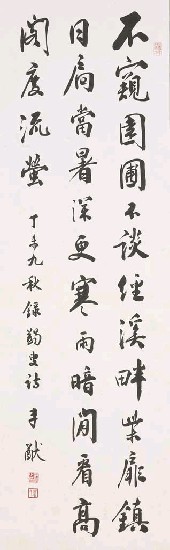 不窺園圃不談經溪畔柴扉鎮
日扃當暑深更寒雨暗閒看高
閣度流螢 丁未九秋錄蠲叟詩 猷